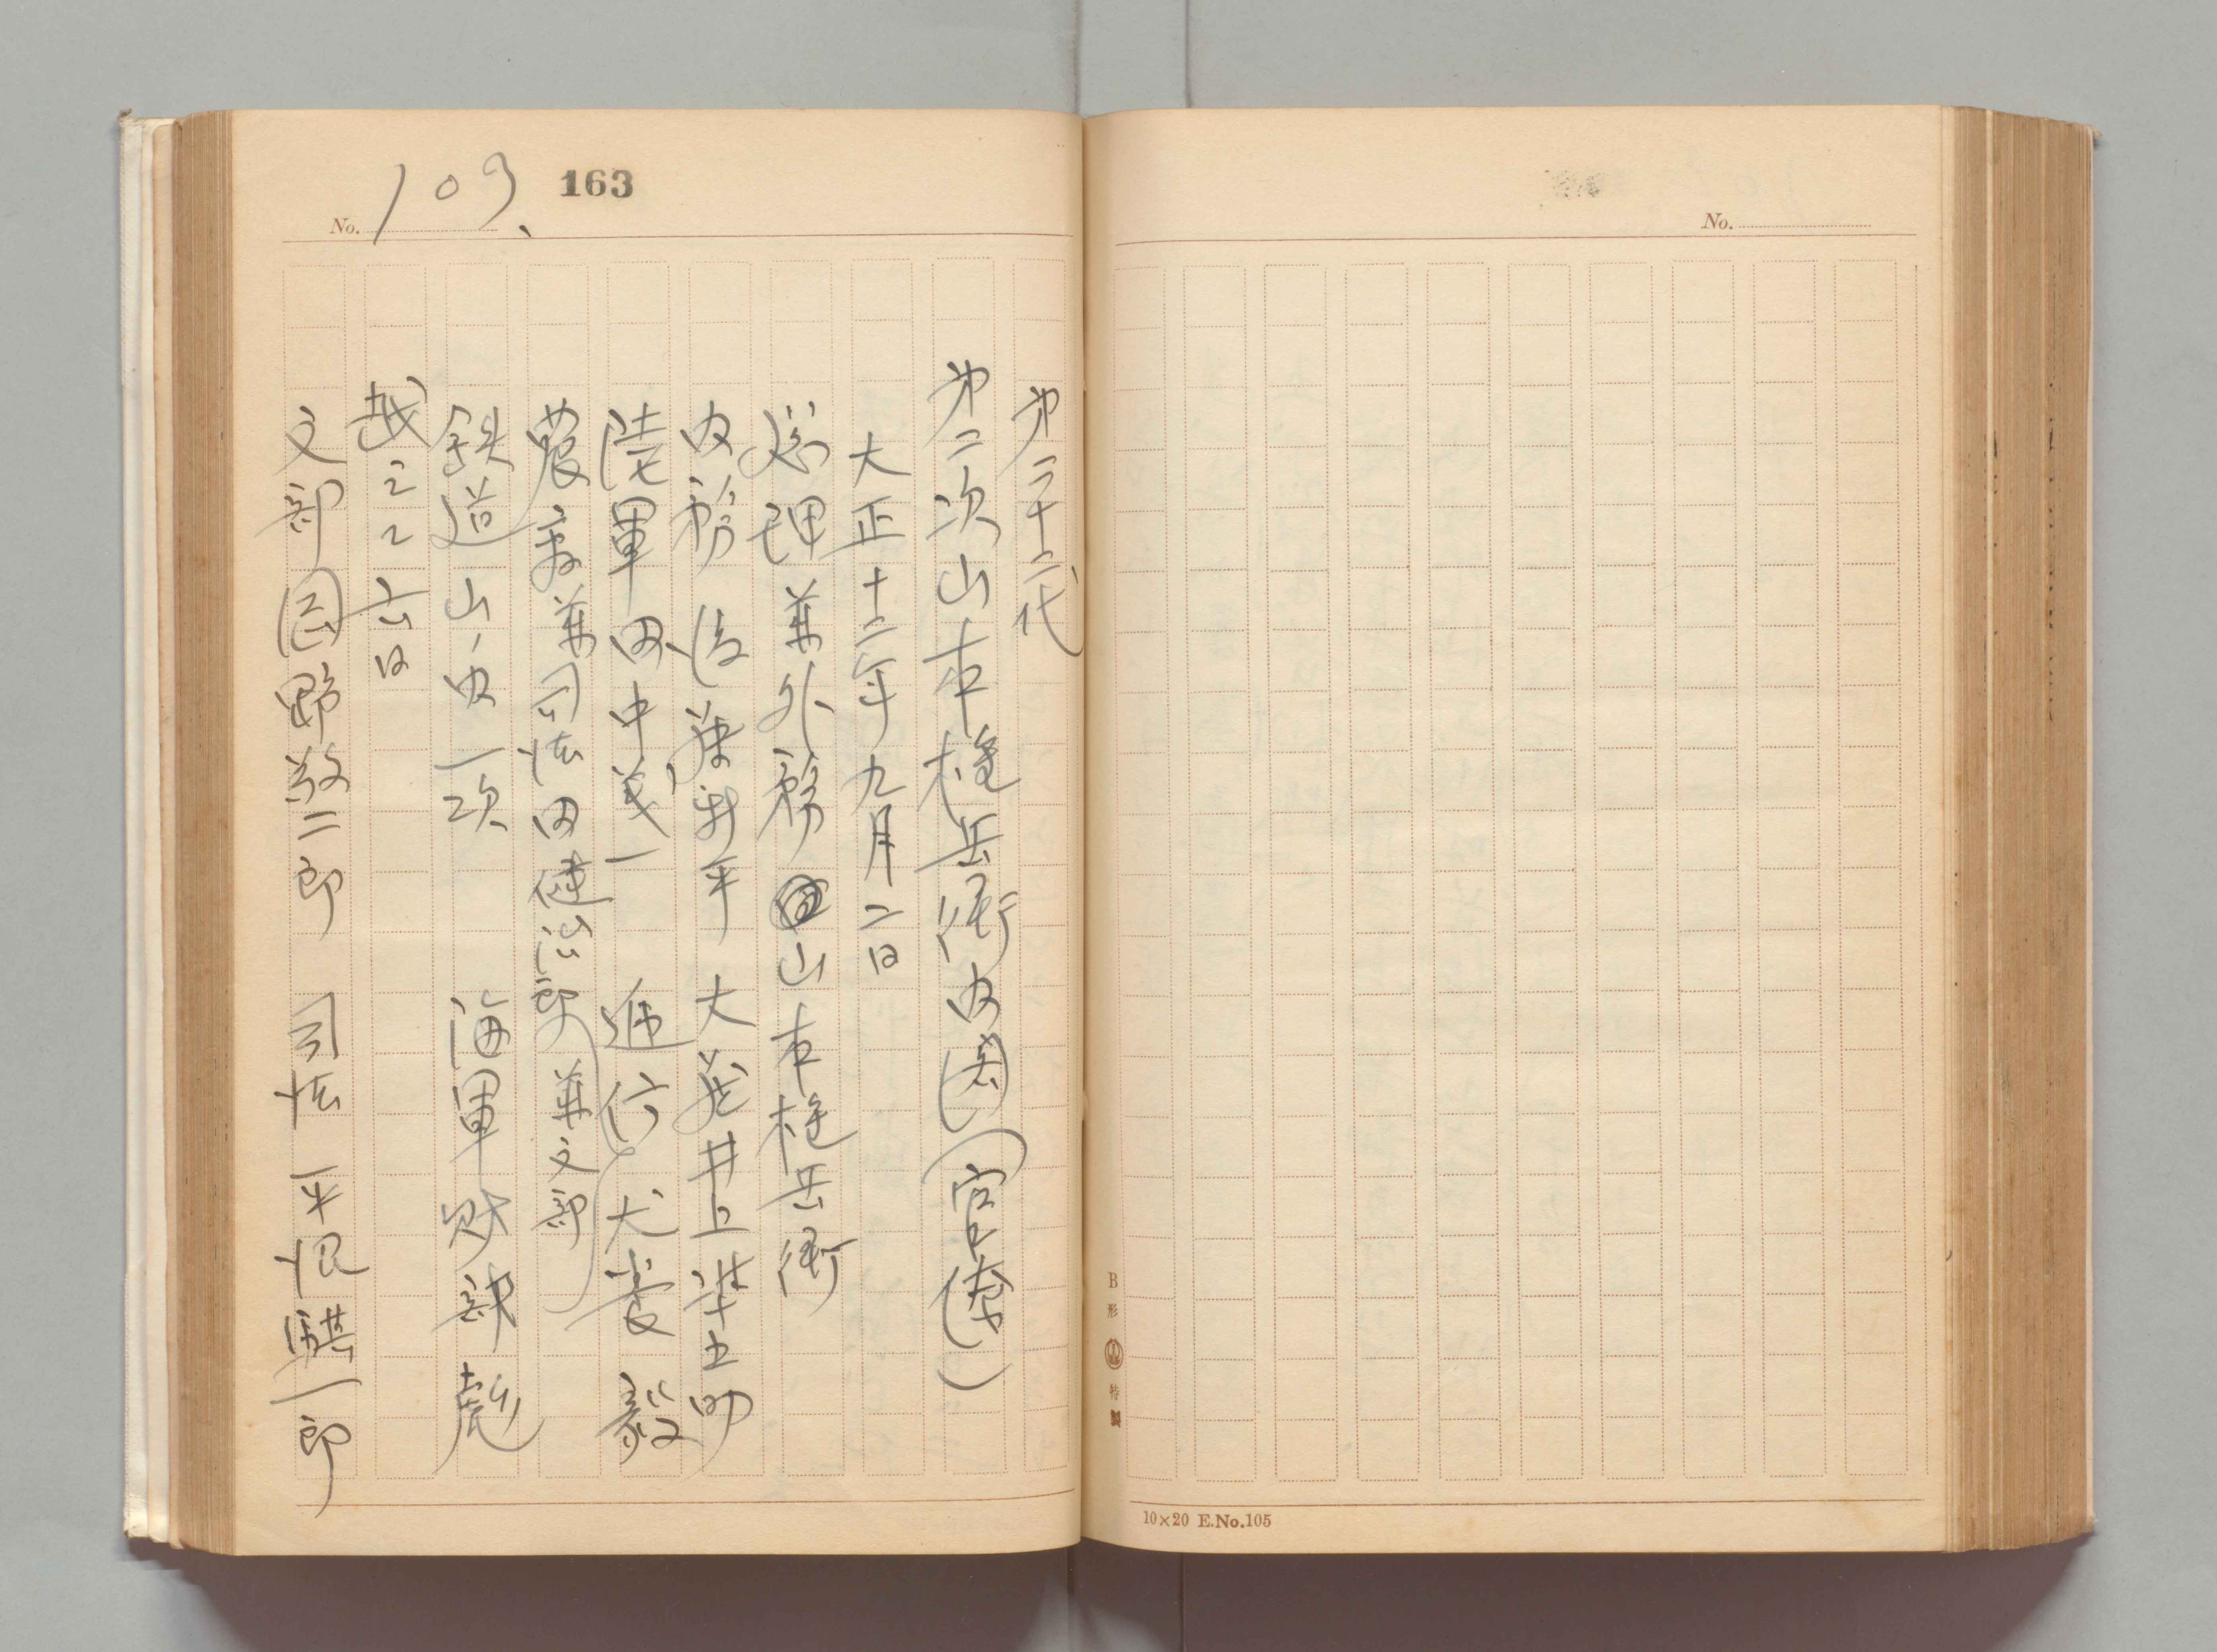 No.
B形 特製
10×20 E.No.105
163
No. 109.
第二十二代
第二次山本権兵衛内閣(官僚)
大正十二年九月二日
総理兼外務 山本権兵衛
内務 後藤新平 大蔵 井上準之助
陸軍 田中義一 逓信 犬養毅
兼文部
農商兼司法 田健治郎
鉄道 山ノ内一次 海軍 財部彪
越 六日
文部 岡野敬二郎 司法 平沼騏一郎